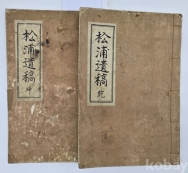 松浦遺稿 乾
松浦遺稿 坤
kobay